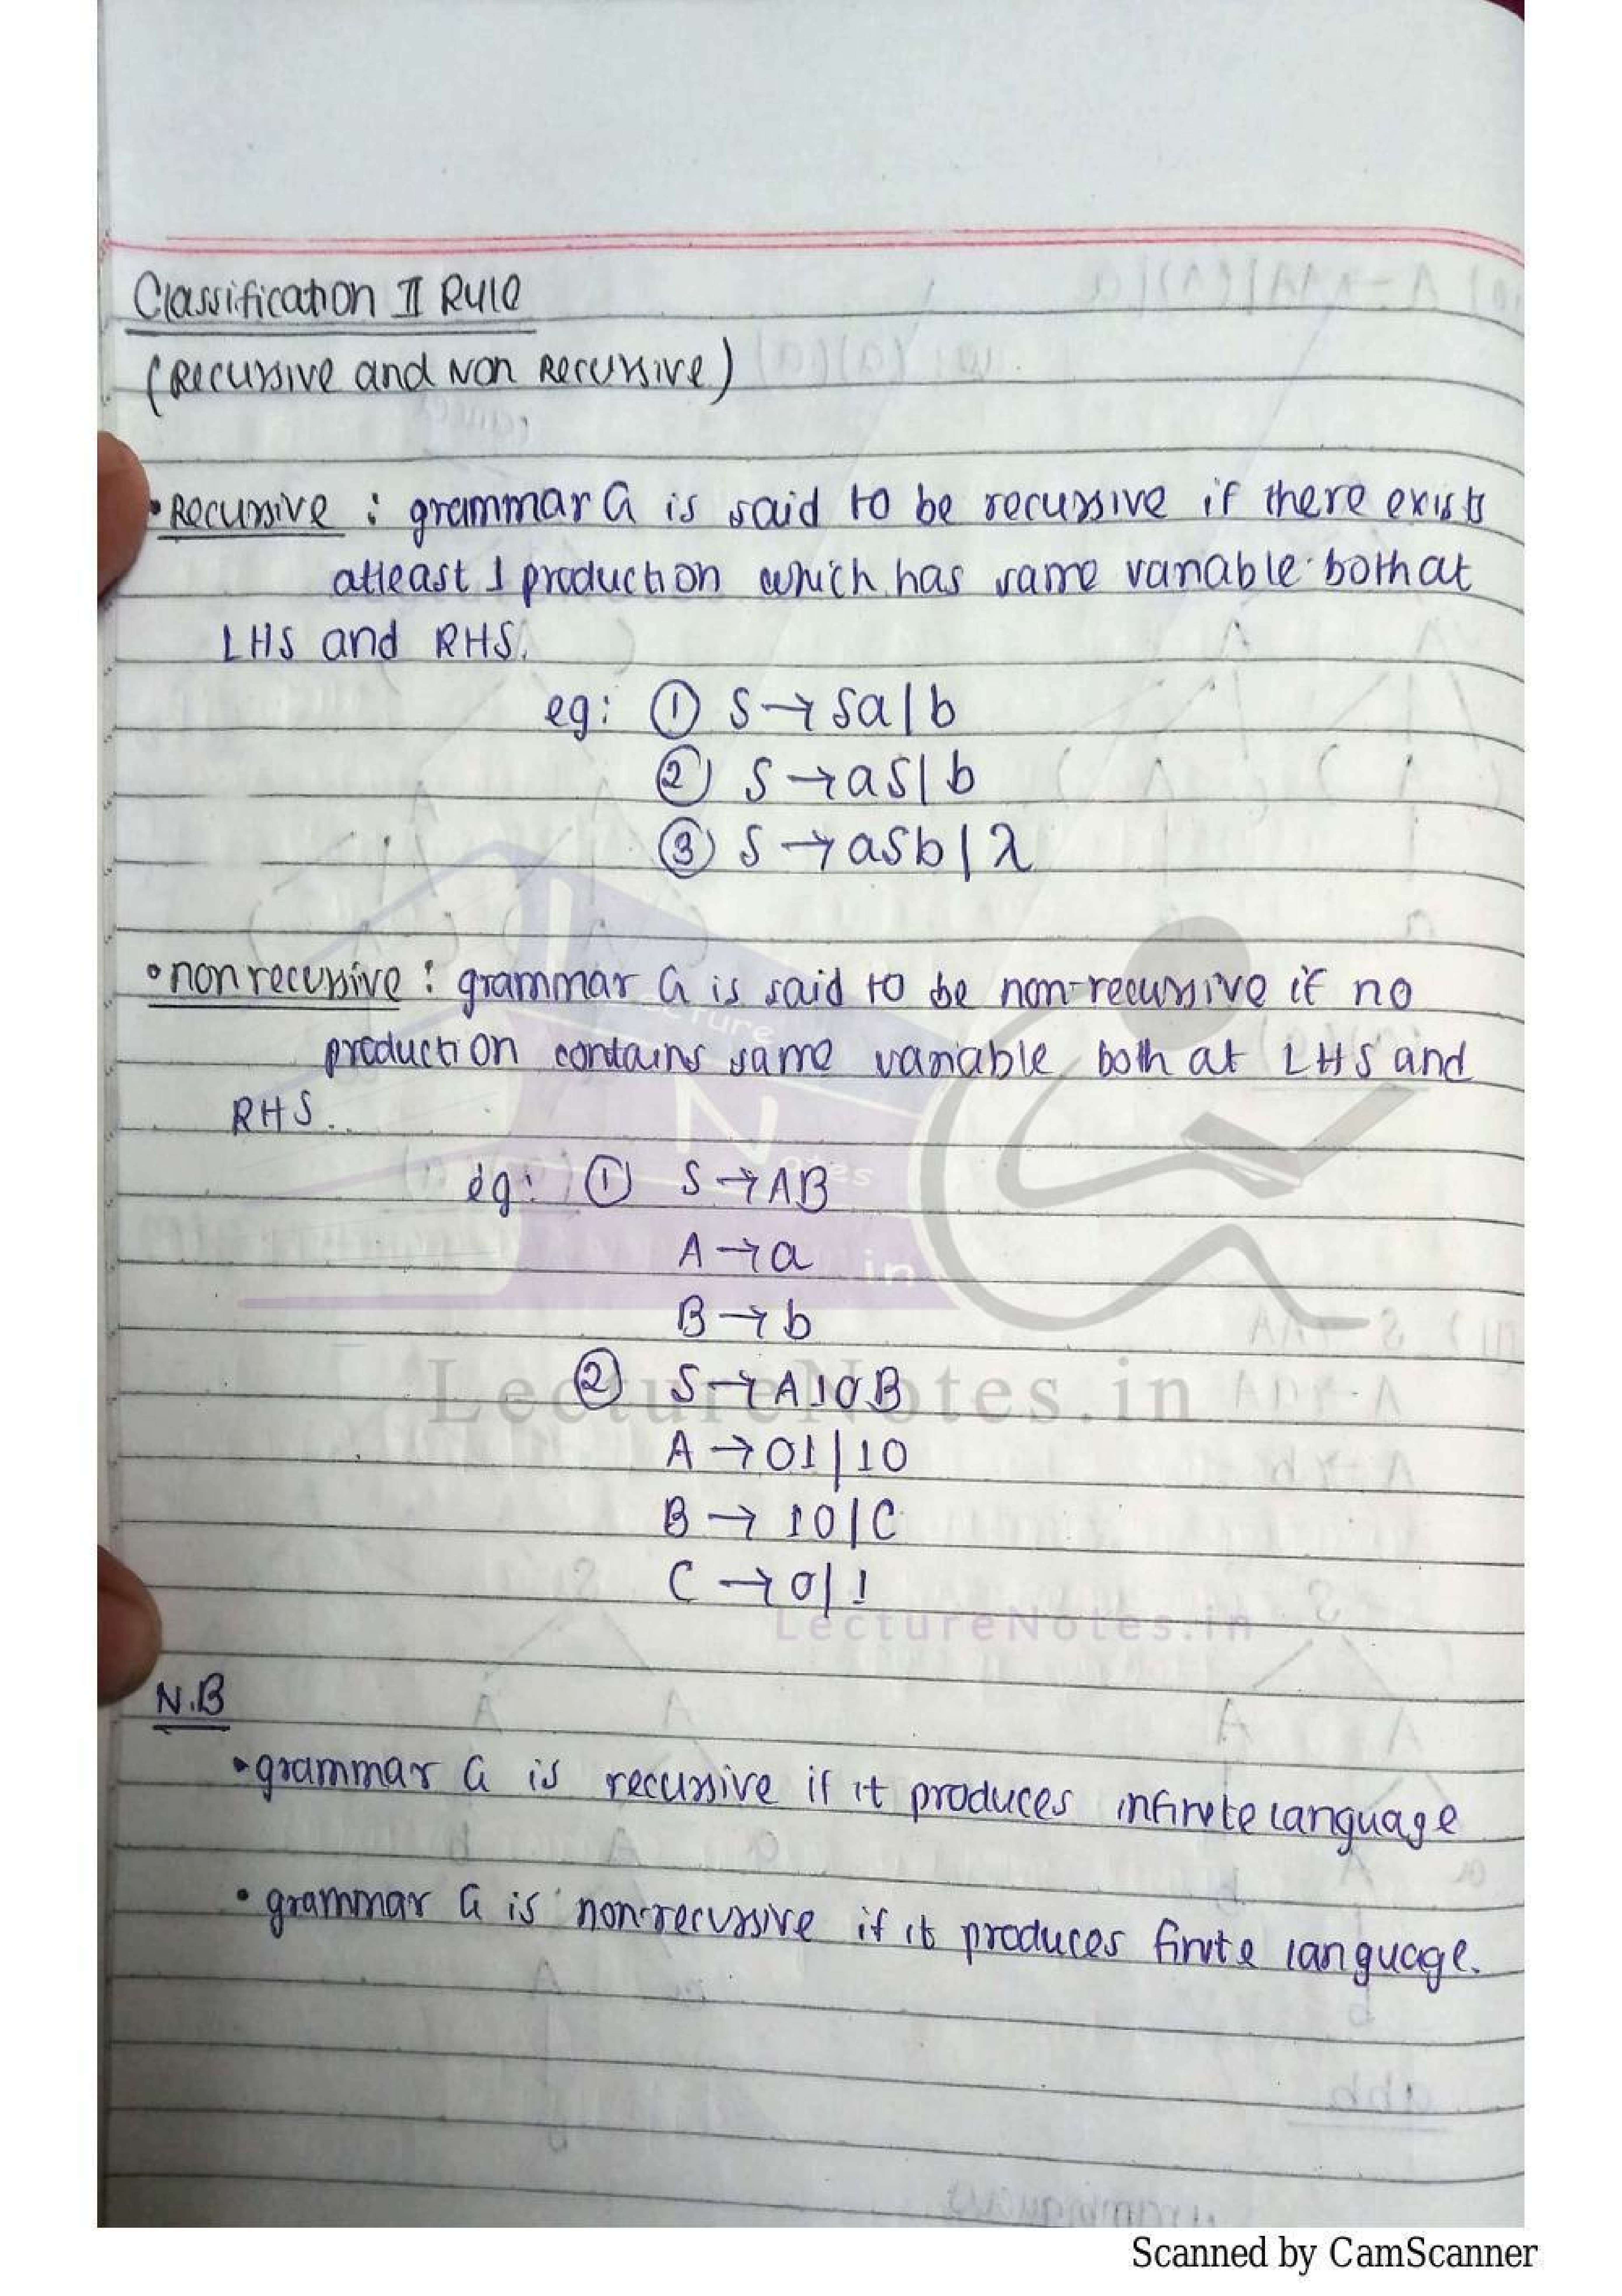 Classification II Rule
(Recursive and Non Recursive)
• Recursive : grammar G is said to be recursive if there exists
atleast 1 production which has same variable both at
LHS and RHS.
eg: ① S → Sa | b
② S → aS | b
③ S → aSb | λ
• nonrecursive : grammar G is said to be non-recursive if no
production contains same variable both at LHS and
RHS.
eg: ① S → AB
A → a
B → b
② S → A10B
A → 01 | 10
B → 10 | C
C → 0 | 1
N.B
• grammar G is recursive if it produces infinite language
• grammar G is non-recursive if it produces finite language.
Lecture
Notes
in
LectureNotes.in
LectureNotes.in
Scanned by CamScanner